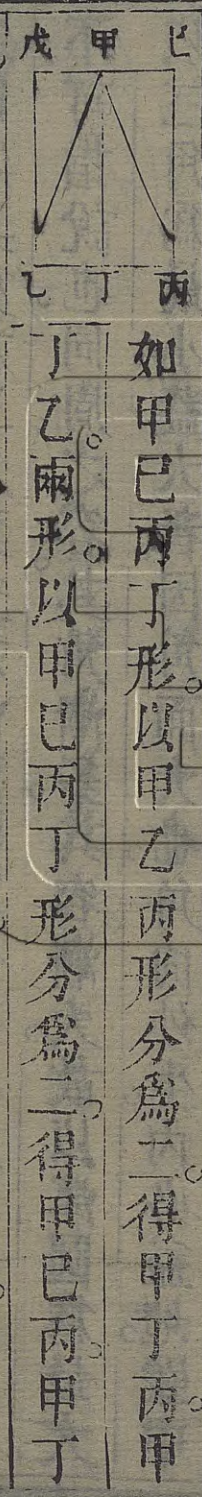 戊甲己
乙丁丙
如甲已丙丁形以甲乙丙形分爲二得甲丁丙甲
丁乙兩形以甲已丙丁形分爲二得甲已丙甲丁